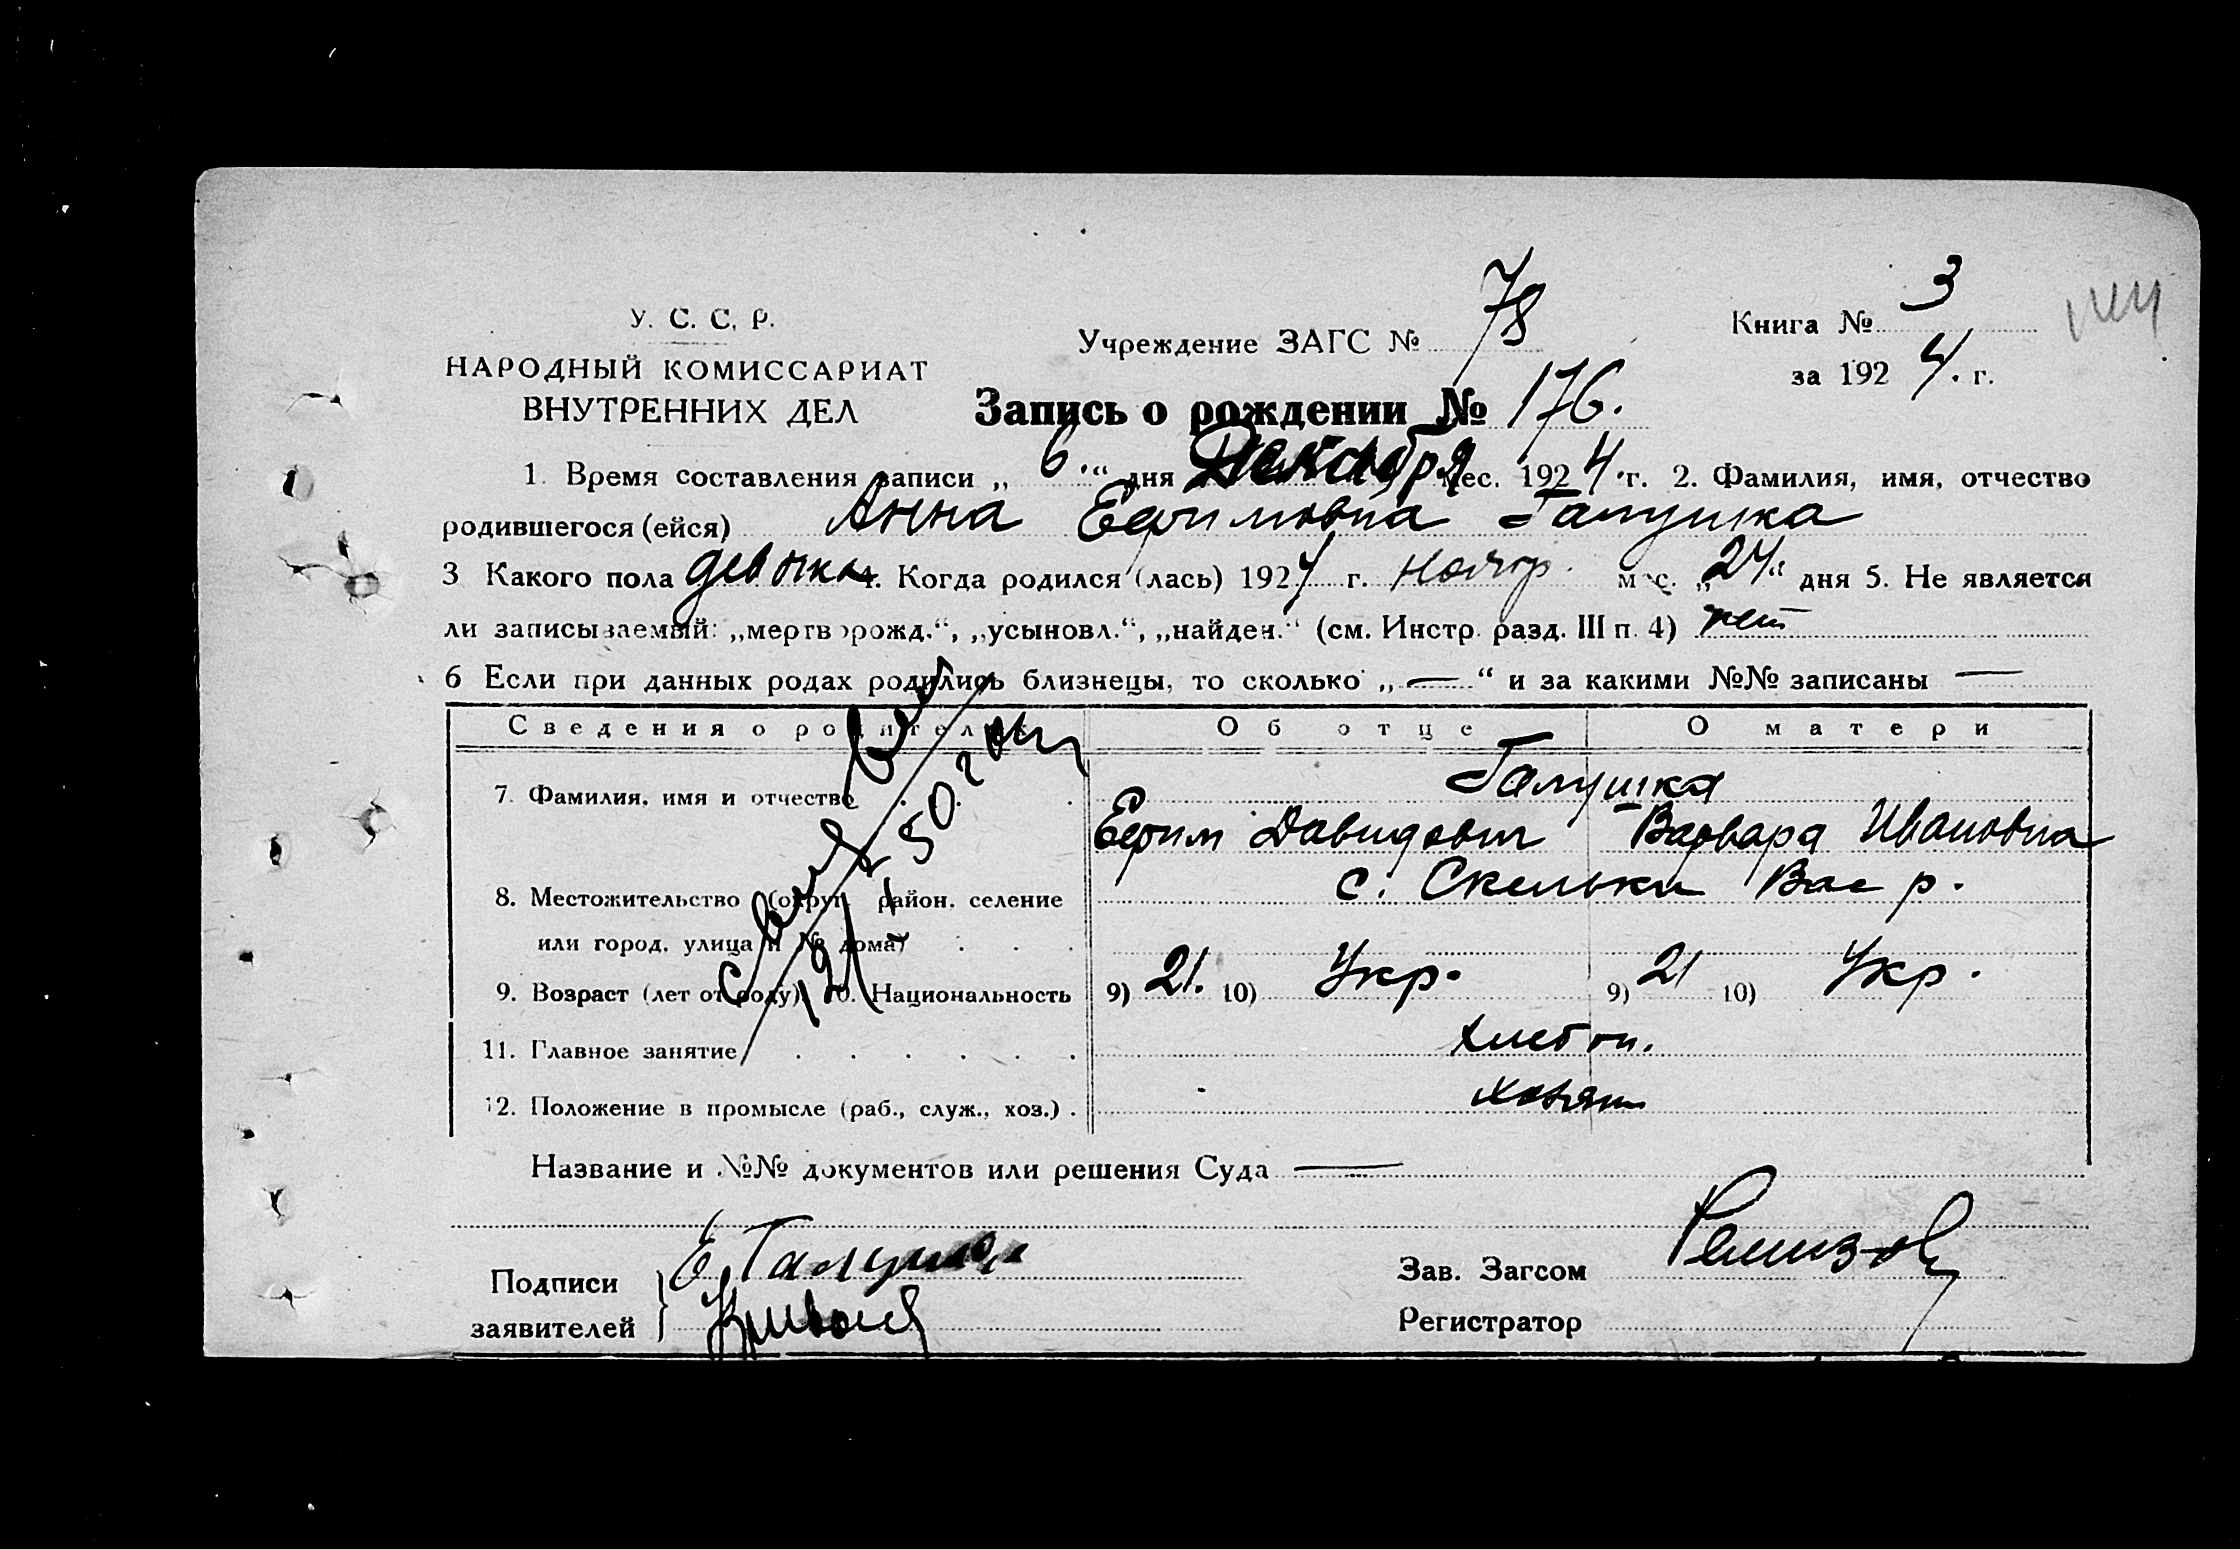 У. С. С. Р.
НАРОДНЫЙ КОМИССАРИАТ
ВНУТРЕННИХ ДЕЛ
Учреждение ЗАГС № 78
Книга № 3
за 1924. г.
Запись о рождении № 176.
1. Время составления записи „6.“ дня Декабря мес. 1924 г. 2. Фамилия, имя, отчество
родившегося (ейся) Анна Ефимовна Галушка
3 Какого пола девочка 4. Когда родился (лась) 1924 г. ноябр. мес. „24“ дня 5. Не является
ли записываемый: „мертворожд.“, „усыновл.“, „найден.“ (см. Инстр. разд. III п. 4) нет
6 Если при данных родах родились близнецы, то сколько „—“ и за какими №№ записаны —
Сведения о родителях Об отце О матери
7. Фамилия, имя и отчество Галушка
Ефим Давидович Варвара Ивановна
8. Местожительство (округ, район, селение с. Скельки Вас р.
или город, улица и № дома)
9. Возраст (лет от роду). 10. Национальность 9) 21. 10) Укр. 9) 21 10) Укр.
11. Главное занятие хлебоп.
12. Положение в промысле (раб., служ., хоз.) хозяин
Название и №№ документов или решения Суда —
Подписи
заявителей
Е Галушка
Зав. Загсом Ремизов
Регистратор